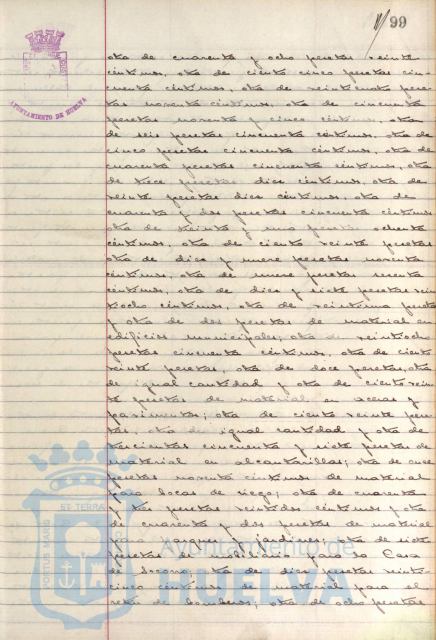 99
AYUNTAMIENTO DE HUELVA
otra de cuarenta y ocho pesetas veinte
céntimos, otra de ciento cinco pesetas cin-
cuenta céntimos, otra de veinticuatro pese-
tas noventa céntimos, otra de cincuenta
pesetas noventa y cinco céntimos, otra
de seis pesetas cincuenta céntimos, otra de
cinco pesetas cincuenta céntimos, otra de
cuarenta pesetas cincuenta céntimos, otra
de trece pesetas diez céntimos, otra de
veinte pesetas diez céntimos, otra de
cuarenta y dos pesetas cincuenta céntimos
otra de treinta y una pesetas ochenta
céntimos, otra de ciento veinte pesetas
otra de diez y nueve pesetas noventa
céntimos, otra de nueve pesetas
céntimos, otra de diez y siete pesetas vein-
tiocho céntimos, otra de pesetas
y otra de dos pesetas de material en
edificios municipales; otra de veintiocho
pesetas cincuenta céntimos, otra de ciento
veinte pesetas, otra de doce pesetas, otra
de igual cantidad y otra de ciento vein-
te pesetas de material en aceras y
pavimentos; otra de ciento veinte pese-
tas, otra de igual cantidad y otra de
trescientas cincuenta y siete pesetas de
material en alcantarillas; otra de once
pesetas noventa céntimos de material
para bocas de riego; otra de cuarenta
y tres pesetas veintidos céntimos y otra
de cuarenta y dos pesetas de material
para parques y jardines; otra de siete
pesetas de material para la Casa
de Socorro; otra de diez pesetas veinti-
cinco céntimos de material para el
retén de bomberos; otra de ocho pesetas
PORTUS MARIS
ET TERRAE
Ayuntamiento de
HUELVA